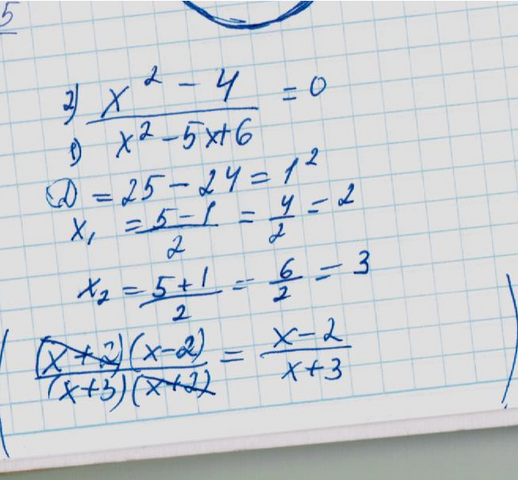 5
2) (x^2 - 4)/(x^2 - 5x + 6) = 0
1)
D = 25 - 24 = 1^2
x₁ = (5 - 1)/2 = 4/2 = 2
x₂ = (5 + 1)/2 = 6/2 = 3
((x + 2)(x - 2))/((x + 3)(x + 2)) = (x - 2)/(x + 3)